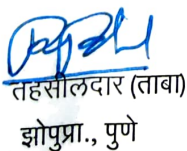 तहसीलदार (ताबा)
झोपुप्रा., पुणे